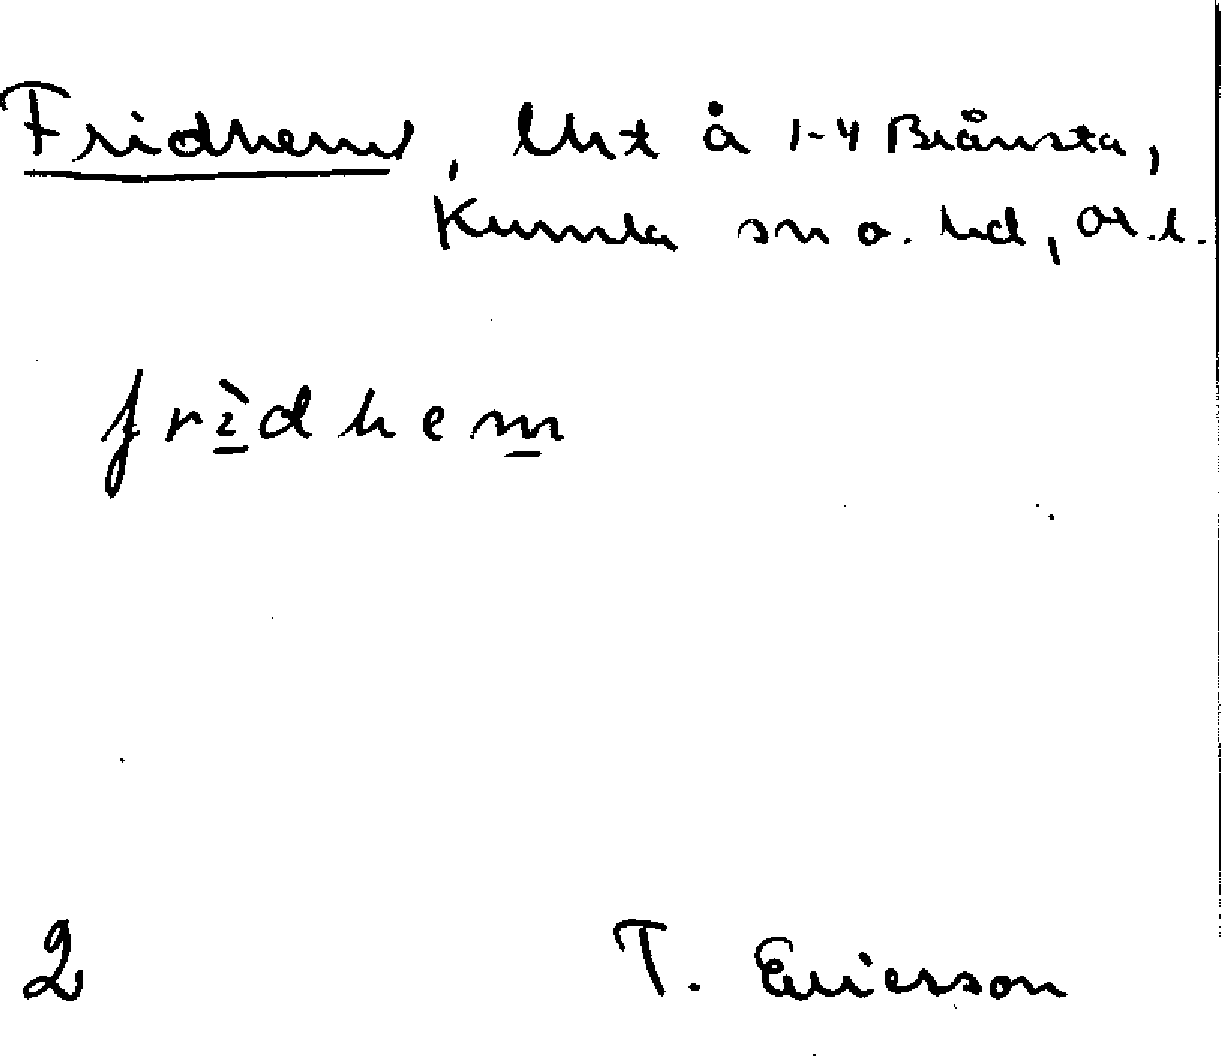 Fridhem, lht å 1-4 Brånsta,
Kumla sn o. hd, Ör.l.
frìdhem
2 T. Ericsson